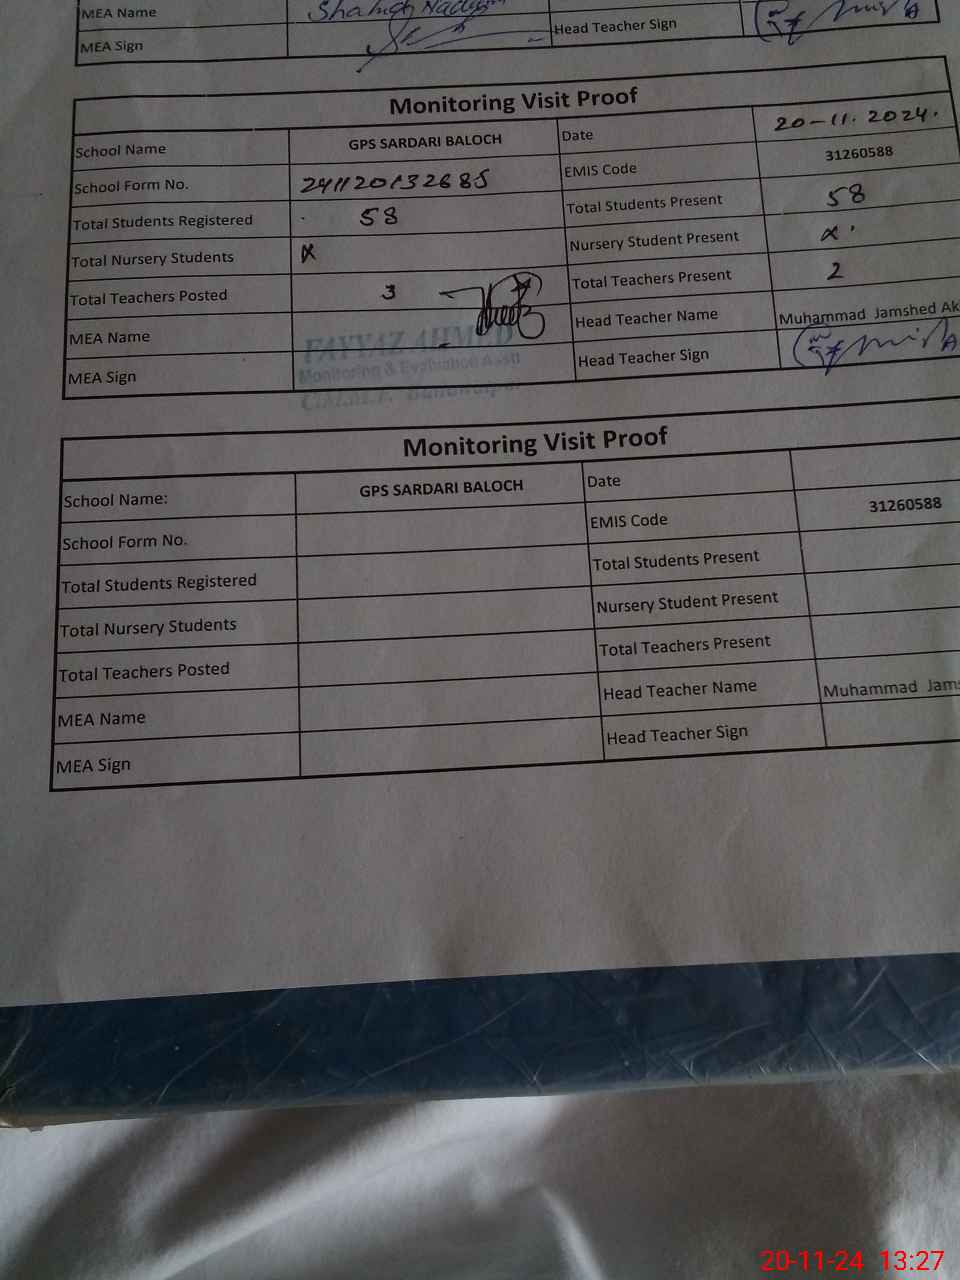 MEA Name
MEA Sign Head Teacher Sign
Monitoring Visit Proof
School Name GPS SARDARI BALOCH Date 20-11.2024.
School Form No. 241120132685 EMIS Code 31260588
Total Students Registered 58 Total Students Present 58
Total Nursery Students x Nursery Student Present x
Total Teachers Posted 3 Total Teachers Present 2
MEA Name FAYYAZ AHMED Head Teacher Name Muhammad Jamshed Ak
MEA Sign Monitoring & Evaluation Asstt Head Teacher Sign
Monitoring Visit Proof
School Name: GPS SARDARI BALOCH Date
School Form No. EMIS Code 31260588
Total Students Registered Total Students Present
Total Nursery Students Nursery Student Present
Total Teachers Posted Total Teachers Present
MEA Name Head Teacher Name Muhammad Jams
MEA Sign Head Teacher Sign
20-11-24 13:27